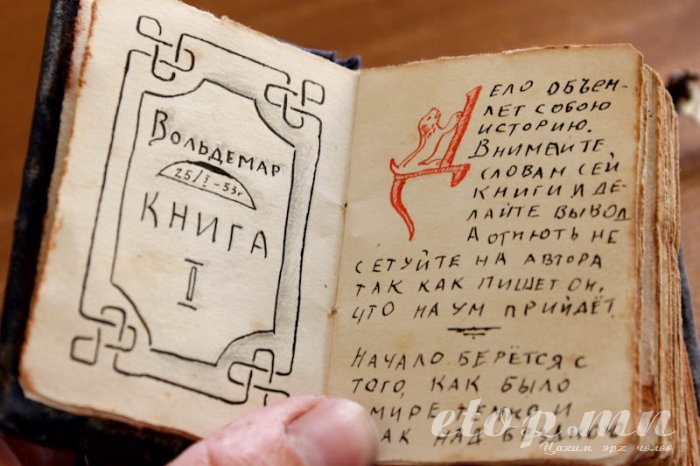 Вольдемар
25/I-53г
КНИГА
I
ДЕЛО ОБЪЕМ-
ЛЕТ СОБОЮ
ИСТОРИЮ.
ВНИМАЙТЕ
СЛОВАМ СЕЙ
КНИГИ И ДЕ-
ЛАЙТЕ ВЫВОД
А ОТНЮТЬ НЕ
СЕТУЙТЕ НА АВТОРА
ТАК КАК ПИШЕТ ОН,
ЧТО НА УМ ПРИЙДЁТ.
НАЧАЛО БЕРЁТСЯ С
ТОГО, КАК БЫЛО
МИРЕ ТЕМНО И
КАК НАД
etop.mn
Цахим эрх чөлөө